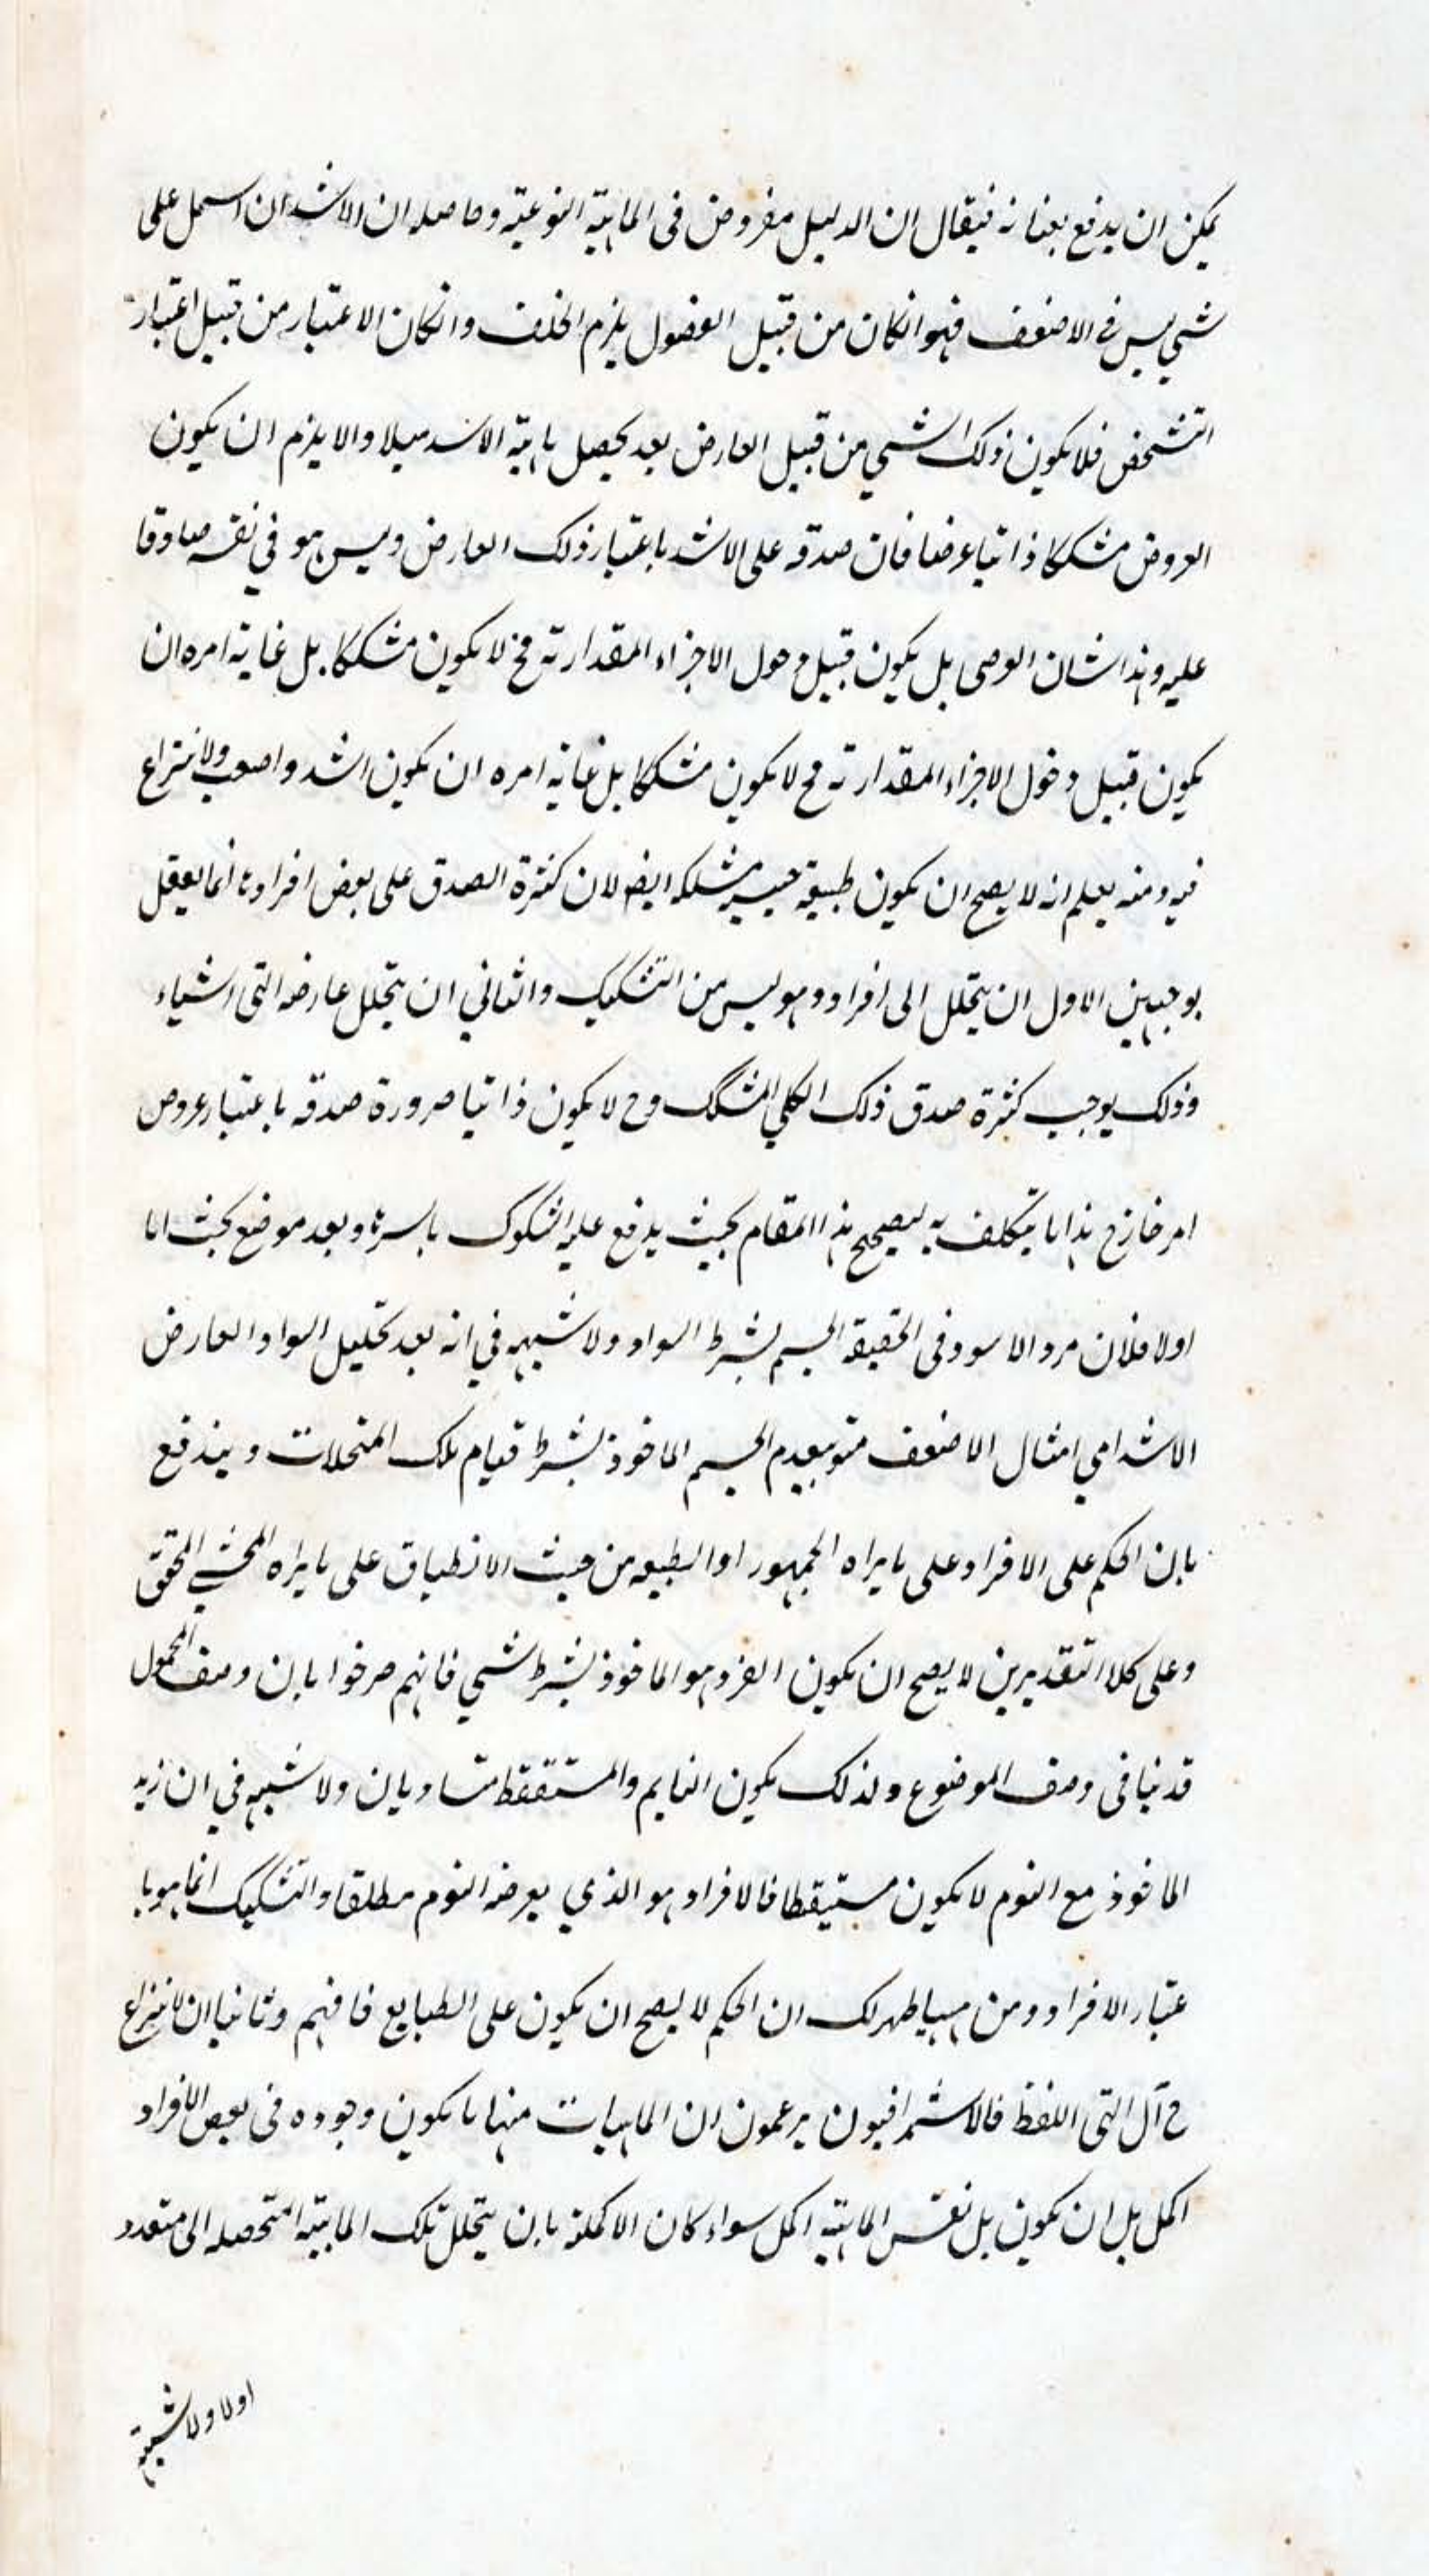 يمكن ان يدفع بعنانه فيقال ان الدليل مفروض فى الماهية النوعية وحاصله ان الاشد ان اشتمل على
شيء ليس فى الاضعف فهو انكان من قبيل الفصول يلزم الخلف وانكان الاعتبار من قبيل اعتبار
التشخص فلا يكون ذلك الشيء من قبيل العارض بعد تحصيل ماهية الاشد والا يلزم ان يكون
العروض مشككا ذاتيا عرضا فان صدقه على الاشد باعتبار ذلك العارض وليس هو في نفسه صادقا
عليه وهذا شان العرضى بل يكون قبيل دخول الاجزاء المقدارية فح لا يكون مشككا بل غاية امره ان
يكون قبيل دخول الاجزاء المقدارية فح لا يكون مشككا بل غاية امره ان يكون اشد واضعف ولا نزاع
فيه ومنه يعلم انه لا يصح ان يكون طبيعة جنسية مشككه ايضا لان كثرة الصدق على بعض افرادها انما يعقل
بوجهين الاول ان يتحلل الى افراده وهو ليس من التشكيك والثاني ان يتحلل عارضه التى اشياء
وذلك يوجب كثرة صدق ذلك الكلي المشكك وح لا يكون ذاتيا ضرورة صدقه باعتبار عروض
امر خارج هذا ما يتكلف به ليصحح هذا المقام بحيث يدفع عليه الشكوك باسرها وبعد موضع بحث اما
اولا فلان مرد الاسود فى الحقيقة الجسم بشرط السواد ولا شبهه في انه بعد تحليل السواد العارض
الاشد امي امثال الاضعف منه ينعدم الجسم الماخوذ بشرط قيام تلك المتحللات ويندفع
بان الحكم على الافراد على ما يراه الجمهور او الطبيعه من حيث الانطباق على ما يراه المحشي المحقق
وعلى كلا التقديرين لا يصح ان يكون الفرد هو الماخوذ بشرط شيء فانهم صرحوا بان وصف المحمول
قد ينافى وصف الموضوع ولذلك يكون النايم والمستيقظ متساويان ولا شبهه في ان زيد
الماخوذ مع النوم لا يكون مستيقظا فالافراد هو الذي يعرضه النوم مطلقا والتشكيك انما هو با
عتبار الافراد ومن ههنا ظهر لك ان الحكم لا يصح ان يكون على الطبايع فافهم وثانيا ان النزاع
ح آل الى اللفظ فالاشراقيون يزعمون ان الماهيات منها ما يكون وجوده فى بعض الافراد
اكمل بل ان يكون بل نفس الماهية اكمل سواء كان الاكملية بان يتحلل تلك الماهية المتحصله الى متعدد
اولا ولا شبهة